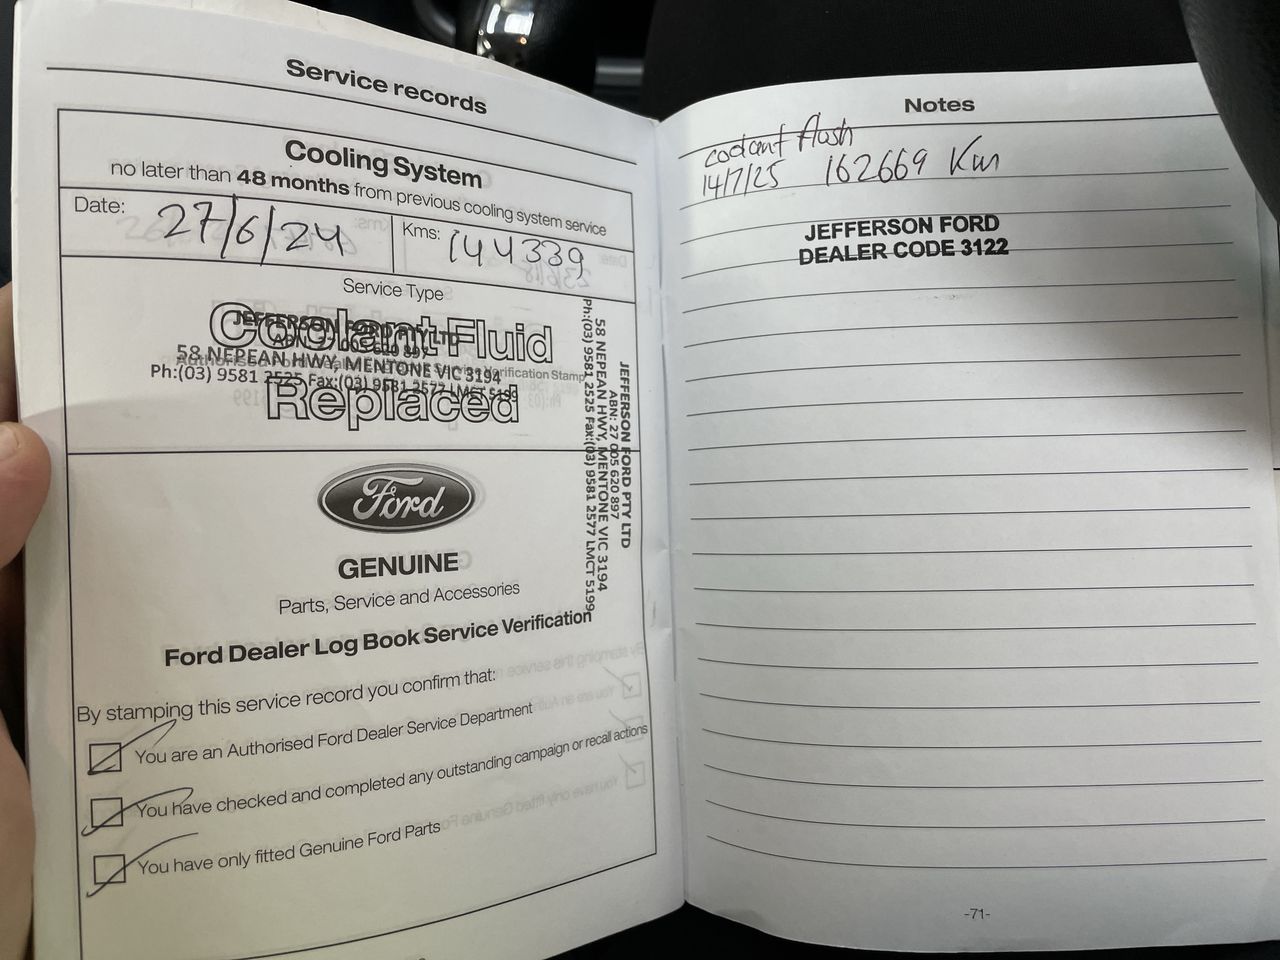 Service records
Cooling System
no later than 48 months from previous cooling system service
Date: 27/6/24
Kms: 144339
Service Type
Coolant Fluid
Replaced
JEFFERSON FORD PTY LTD
ABN: 27 005 620 897
58 NEPEAN HWY, MENTONE VIC 3194
Authorised Ford Dealer Service Verification Stamp
Ph:(03) 9581 2525 Fax:(03) 9581 2577 LMCT 5199
JEFFERSON FORD PTY LTD
ABN: 27 005 620 897
58 NEPEAN HWY, MENTONE VIC 3194
Ph:(03) 9581 2525 Fax:(03) 9581 2577 LMCT 5199
Ford
GENUINE
Parts, Service and Accessories
Ford Dealer Log Book Service Verification
By stamping this service record you confirm that:
You are an Authorised Ford Dealer Service Department
You have checked and completed any outstanding campaign or recall actions
You have only fitted Genuine Ford Parts
Notes
coolant flush
14/7/25 162669 Km
JEFFERSON FORD
DEALER CODE 3122
-71-